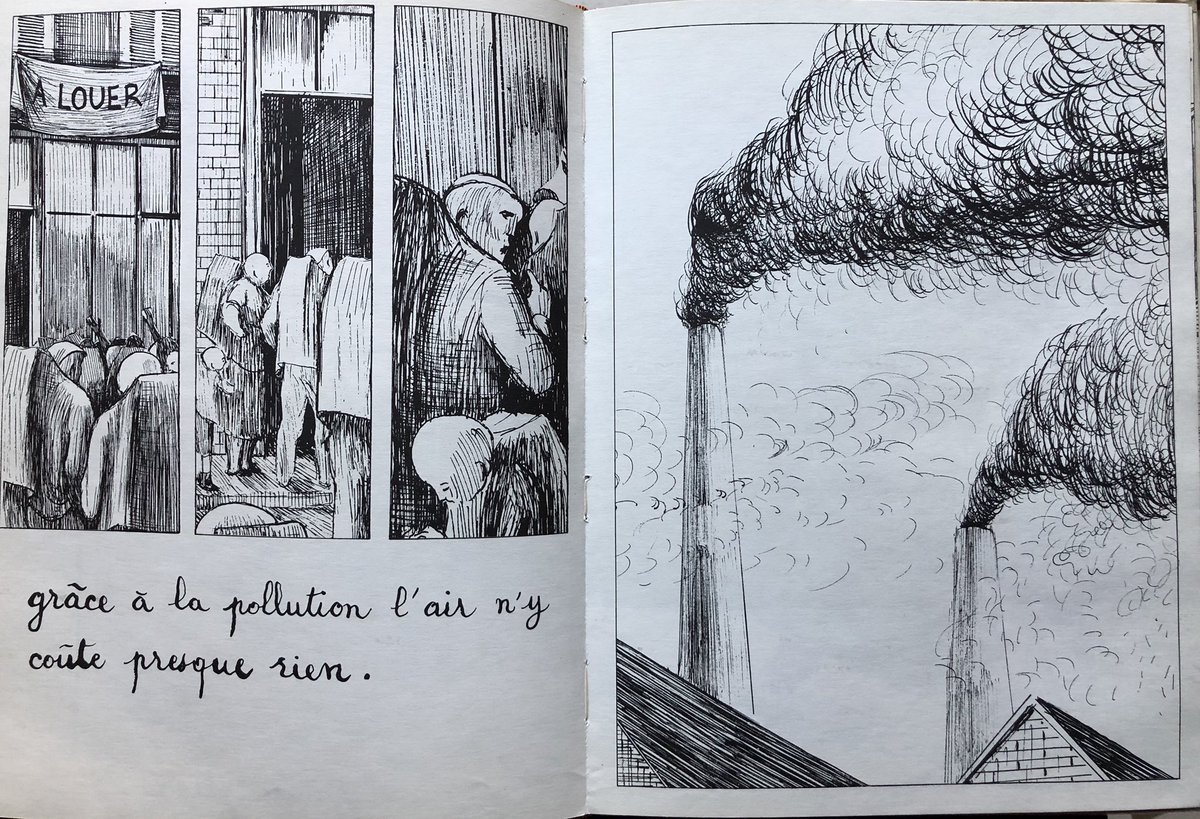 A LOUER
grâce à la pollution l'air n'y
coûte presque rien.